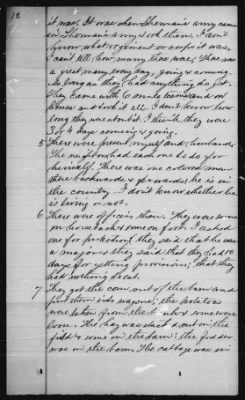 12
it was. It was when Sherman's army came
in Sherman's army took them. I don't
know what regiment or corps it was,
I can't tell how many there were, There was
a great many every day, going & coming.
So long as they had anything to get.
They came with 6 mule teams and
knew and took it all. I don't know how
long they were about it. I think they were
3 or 4 days coming & going.
5 There were present myself and husband
The neighbors had each one to do for
himself. There was one colored man
there backwards & forwards, he is in
the country. I don't know whether he
is living or not.
6 There were officers there. They were some
on horseback & some on foot. I asked
one for protection, they said that he was
a major & they said that they had 10
days for getting provisions, that they
had nothing to eat.
7 They got the corn out of the barn and
put them into wagons, the potatoes
were taken from the & some were
. The hay was stacked out in the
field & some in the barn; the fodder
was in the barn. The cabbage was in